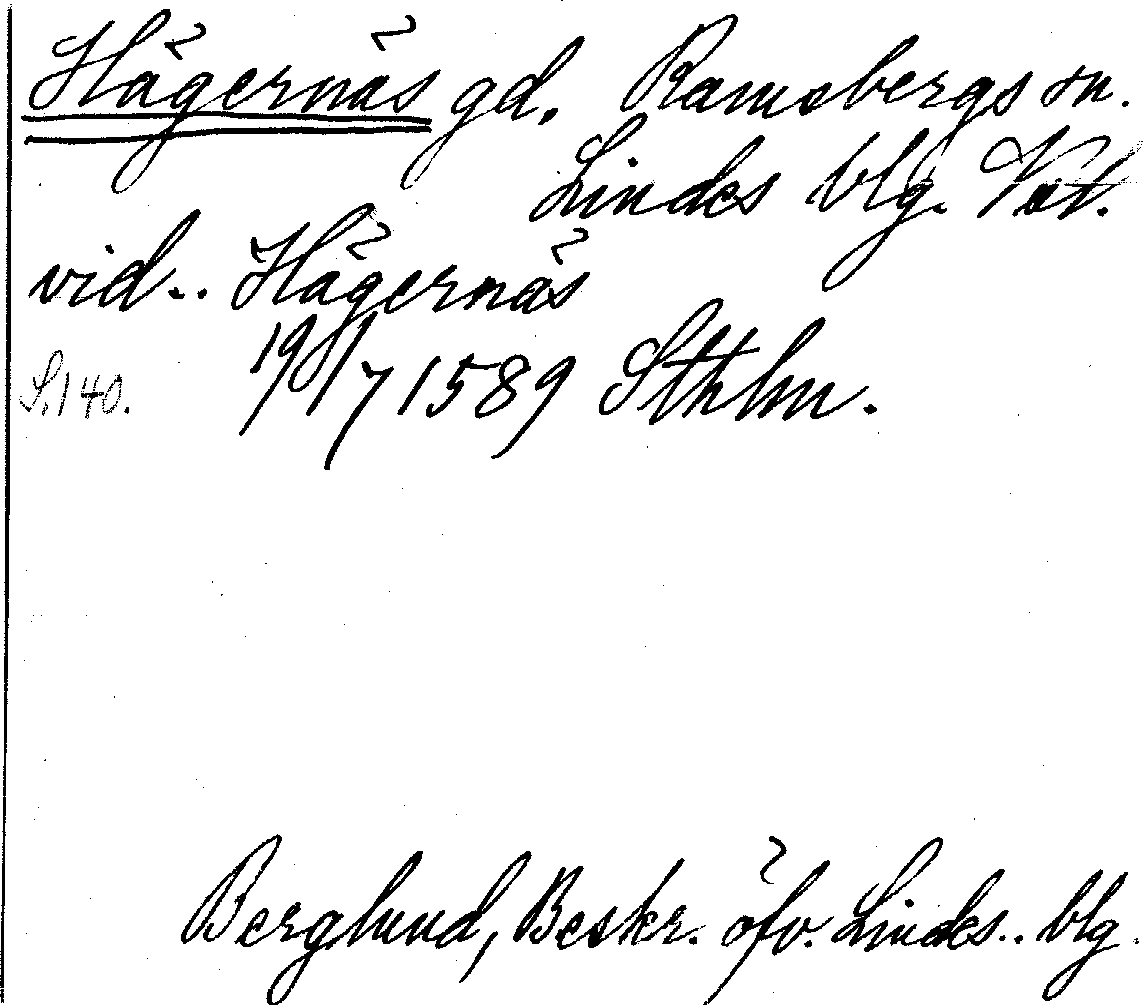 Hägernäs gd. Ramsbergs sn.
Lindes blg. Vstl.
vid.. Hägernäs
19/7 1589 Sthlm.
S.140.
Berglund, Beskr. öfv. Lindes.. blg.